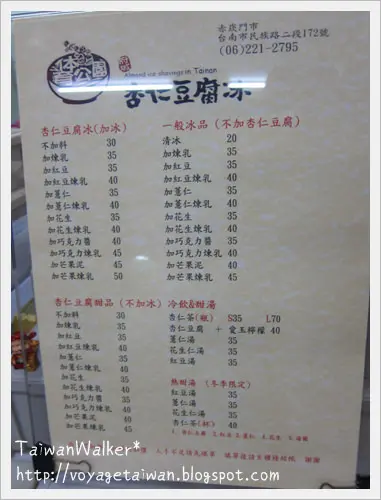 赤崁門市
台南市民族路二段172號
(06)221-2795
Almond ice shavings in Tainan
杏仁豆腐冰
杏仁豆腐冰(加冰)
不加料 30
加煉乳 35
加紅豆 35
加紅豆煉乳 40
加薏仁 35
加薏仁煉乳 40
加花生 35
加花生煉乳 40
加巧克力醬 40
加巧克力煉乳 45
加芒果泥 45
加芒果煉乳 50
一般冰品 (不加杏仁豆腐)
清冰 20
加煉乳 35
加紅豆 35
加紅豆煉乳 40
加薏仁 35
加薏仁煉乳 40
加花生 35
加花生煉乳 40
加巧克力醬 35
加巧克力煉乳 40
加芒果泥 40
加芒果煉乳 45
杏仁豆腐甜品 (不加冰)
不加料 30
加煉乳 35
加紅豆 35
加紅豆煉乳 40
加薏仁 35
加薏仁煉乳 40
加花生 35
加花生煉乳 40
加巧克力醬 35
加巧克力煉乳 40
加芒果泥 40
加芒果煉乳 45
冷飲&甜湯
杏仁茶(瓶) S35 L70
杏仁豆腐 + 愛玉檸檬 40
薏仁湯 35
花生仁湯 35
紅豆湯 35
熱甜湯 (冬季限定)
紅豆湯 35
薏仁湯 35
花生仁湯 35
杏仁茶(杯) 40
TaiwanWalker*
http://voyagetaiwan.blogspot.com